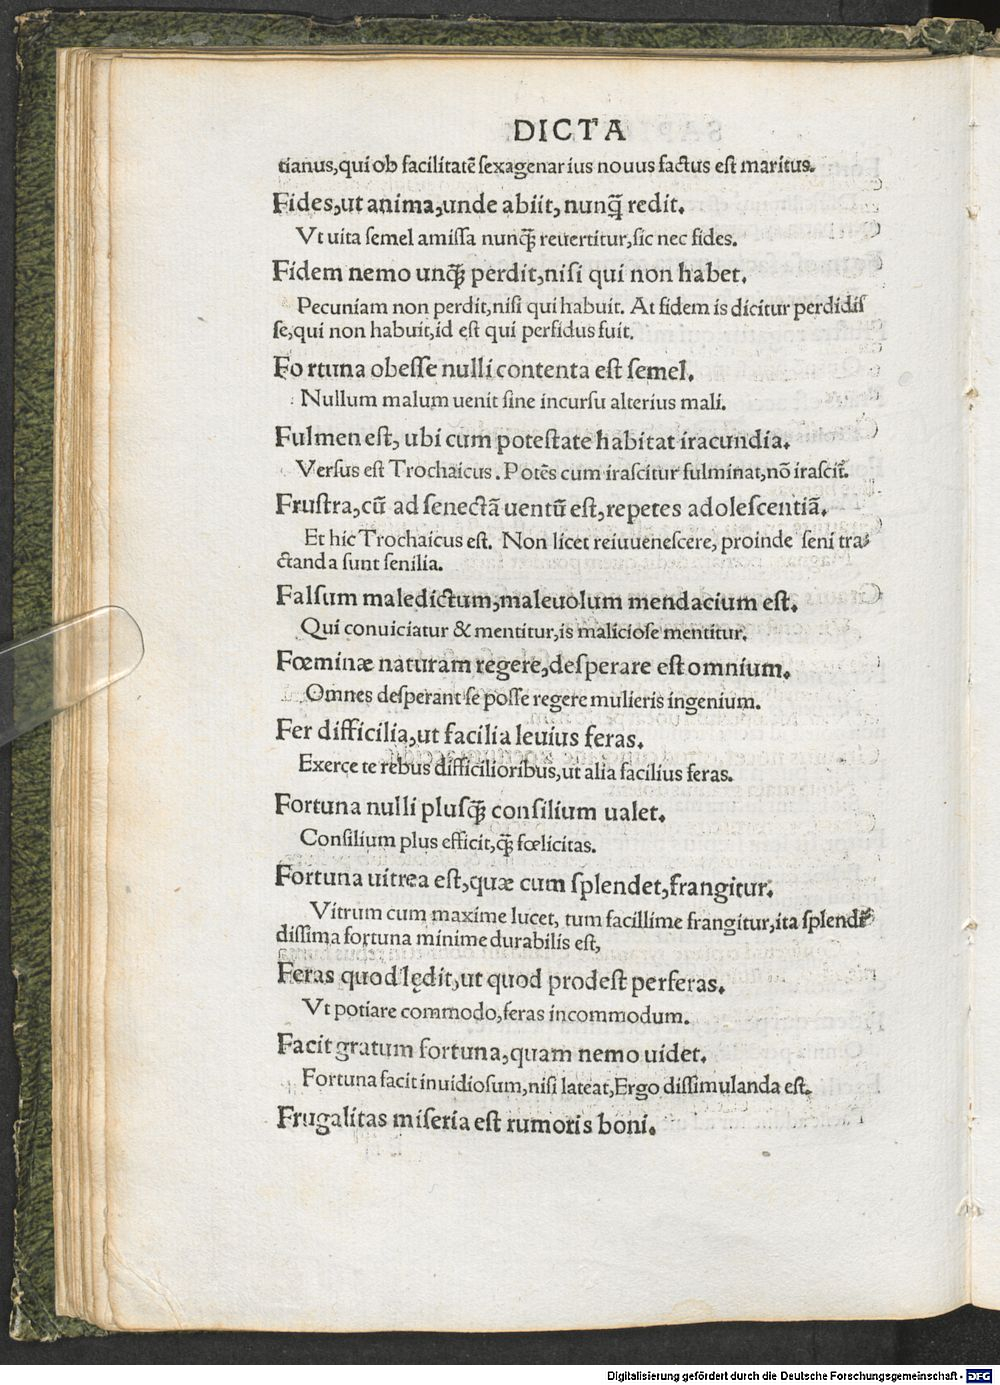 DICTA
tianus,qui ob facilitatẽ sexagenarius nouus factus est maritus.
Fides,ut anima,unde abiit, nunq̃ redit.
Vt uita semel amissa nunq̃ reuertitur,sic nec fides.
Fidem nemo unq̃ perdit,nisi qui non habet.
Pecuniam non perdit,nisi qui habuit. At fidem is dicitur perdidis
se,qui non habuit,id est qui perfidus fuit.
Fortuna obesse nulli contenta est semel.
Nullum malum uenit sine incursu alterius mali.
Fulmen est, ubi cum potestate habitat iracundia.
Versus est Trochaicus. Potẽs cum irascitur fulminat,nõ irascit̃.
Frustra,cũ ad senectã uentũ est,repetes adolescentiã.
Et hic Trochaicus est. Non licet reiuuenescere, proinde seni tra-
ctanda sunt senilia.
Falsum maledictum,maleuolum mendacium est.
Qui conuiciatur & mentitur,is maliciose mentitur.
Fœminæ naturam regere,desperare est omnium.
Omnes desperant se posse regere mulieris ingenium.
Fer difficilia,ut facilia leuius feras.
Exerce te rebus difficilioribus,ut alia facilius feras.
Fortuna nulli plusq̃ consilium ualet.
Consilium plus efficit,q̃ fœlicitas.
Fortuna uitrea est,quæ cum splendet,frangitur.
Vitrum cum maxime lucet, tum facillime frangitur,ita splendi-
dissima fortuna minime durabilis est,
Feras quod lędit,ut quod prodest perferas.
Vt potiare commodo,feras incommodum.
Facit gratum fortuna,quam nemo uidet.
Fortuna facit inuidiosum,nisi lateat,Ergo dissimulanda est.
Frugalitas miseria est rumoris boni.
Digitalisierung gefördert durch die Deutsche Forschungsgemeinschaft - DFG